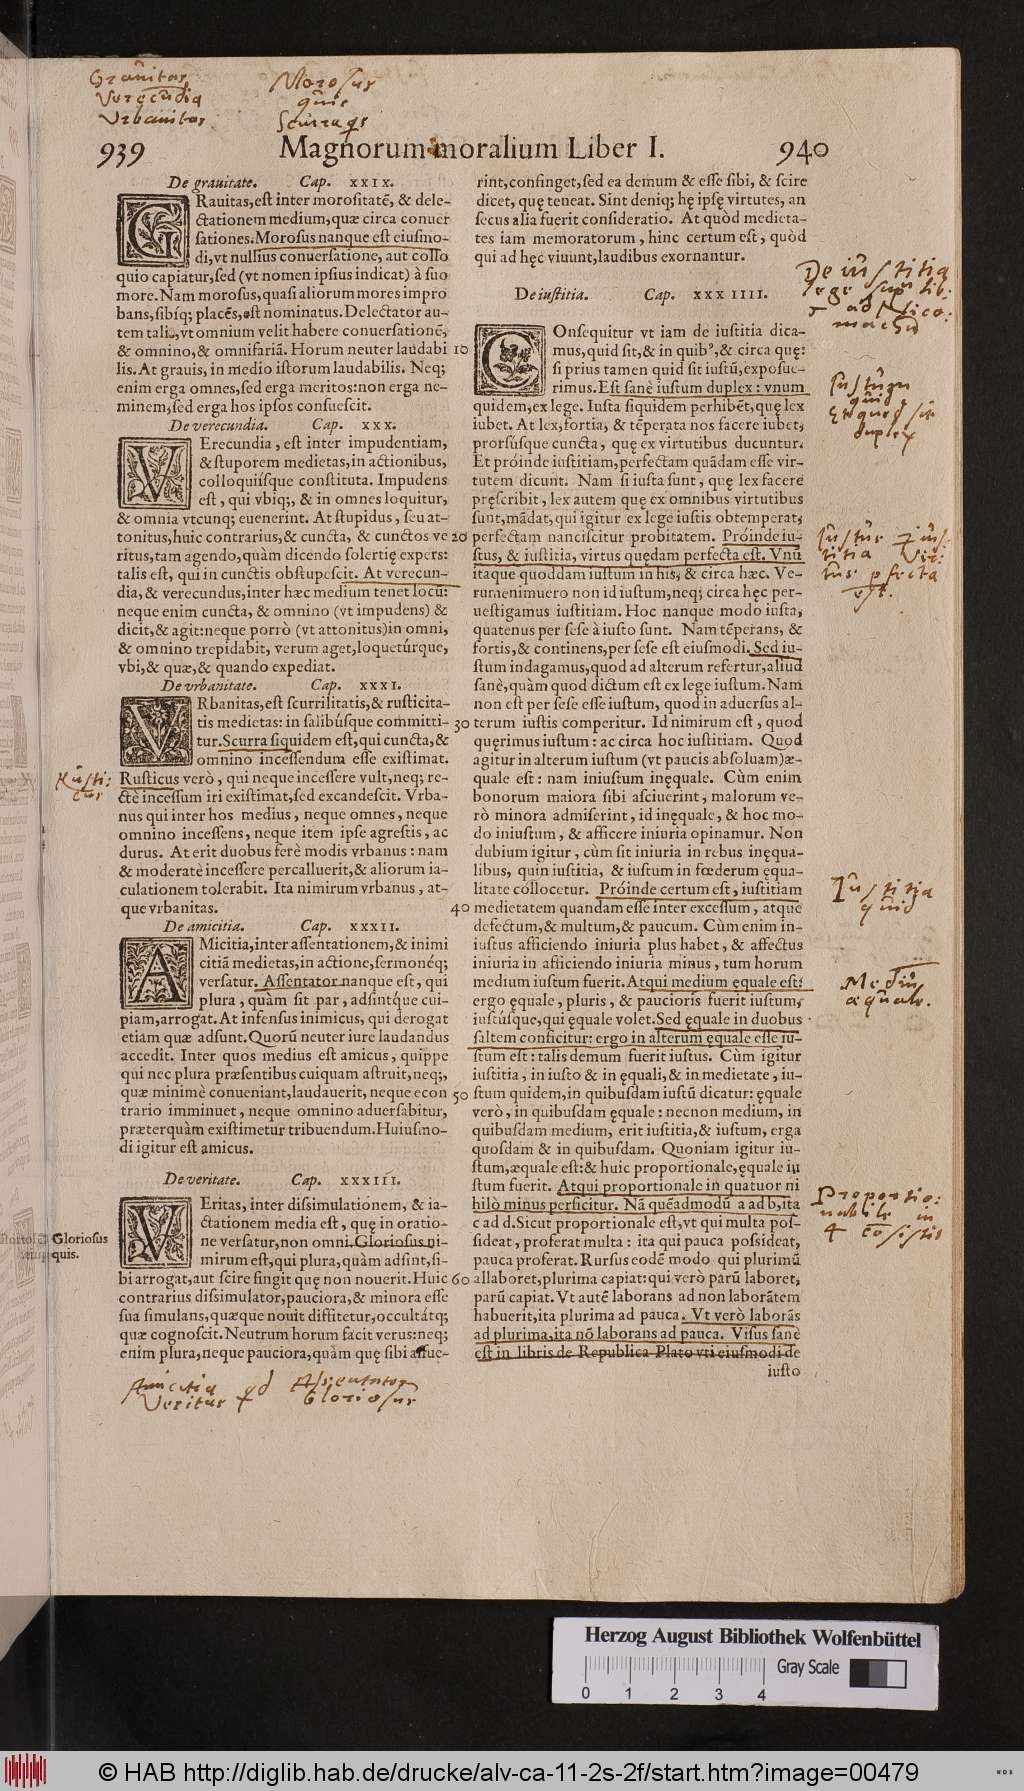 Grauitas
Verecūdia
Vrbanitas
Morosus
quis
Scurra qs
939
Magnorum moralium Liber I.
940
De grauitate. Cap. XXIX.
GRauitas, est inter morositatē, & dele-
ctationem medium, quæ circa conuer
sationes. Morosus nanque est eiusmo-
di, vt nullius conuersatione, aut collo
quio capiatur, sed (vt nomen ipsius indicat) à suo
more. Nam morosus, quasi aliorum mores impro
bans, sibíq; placēs, est nominatus. Delectator au-
tem talis, vt omnium velit habere conuersationē,
& omnino, & omnifariā. Horum neuter laudabi
lis. At grauis, in medio istorum laudabilis. Neq;
enim erga omnes, sed erga meritos: non erga ne-
minem, sed erga hos ipsos consuescit.
De verecundia. Cap. XXX.
VErecundia, est inter impudentiam,
& stuporem medietas, in actionibus,
colloquiísque constituta. Impudens
est, qui vbiq;, & in omnes loquitur,
& omnia vtcunq; euenerint. At stupidus, seu at-
tonitus, huic contrarius, & cuncta, & cunctos ve
ritus, tam agendo, quàm dicendo solertię expers:
talis est, qui in cunctis obstupescit. At verecun-
dia, & verecundus, inter hæc medium tenet locū:
neque enim cuncta, & omnino (vt impudens) &
dicit, & agit: neque porrò (vt attonitus) in omni,
& omnino trepidabit, verum aget, loquetúrque,
vbi, & quæ, & quando expediat.
De vrbanitate. Cap. XXXI.
VRbanitas, est scurrilitatis, & rusticita-
tis medietas: in salibúsque committi-
tur. Scurra siquidem est, qui cuncta, &
omnino incessendum esse existimat.
Rusti:
cus
Rusticus verò, qui neque incessere vult, neq; re-
ctè incessum iri existimat, sed excandescit. Vrba-
nus qui inter hos medius, neque omnes, neque
omnino incessens, neque item ipse agrestis, ac
durus. At erit duobus ferè modis vrbanus: nam
& moderatè incessere percalluerit, & aliorum ia-
culationem tolerabit. Ita nimirum vrbanus, at-
que vrbanitas.
De amicitia. Cap. XXXII.
AMicitia, inter assentationem, & inimi
citiā medietas, in actione, sermonéq;
versatur. Assentator nanque est, qui
plura, quàm sit par, adsintque cui-
piam, arrogat. At infensus inimicus, qui derogat
etiam quæ adsunt. Quorū neuter iure laudandus
accedit. Inter quos medius est amicus, quippe
qui nec plura præsentibus cuiquam astruit, neq;,
quæ minimè conueniant, laudauerit, neque econ
trario imminuet, neque omnino aduersabitur,
præterquàm existimetur tribuendum. Huiusmo-
di igitur est amicus.
De veritate. Cap. XXXIII.
VEritas, inter dissimulationem, & ia-
ctationem media est, quę in oratio-
Gloriosus
quis.
ne versatur, non omni. Gloriosus ni-
mirum est, qui plura, quàm adsint, si-
bi arrogat, aut scire fingit quę non nouerit. Huic
contrarius dissimulator, pauciora, & minora esse
sua simulans, quæque nouit diffitetur, occultátq;
quæ cognoscit. Neutrum horum facit verus: neq;
enim plura, neque pauciora, quàm quę sibi affue-
Amicitia qd Assentator
Veritas Gloriosus
rint, confinget, sed ea demum & esse sibi, & scire
dicet, quę teneat. Sint deniq; hę ipsę virtutes, an
secus alia fuerit consideratio. At quòd medieta-
tes iam memoratorum, hinc certum est, quòd
qui ad hęc viuunt, laudibus exornantur.
De iustitia. Cap. XXXIIII.
De iustitia
lege lib:
ad Nico:
machū
COnsequitur vt iam de iustitia dica-
10 mus, quid sit, & in quibꝰ, & circa quę:
si prius tamen quid sit iustū, exposue-
rimus. Est sanè iustum duplex: vnum
Iustum
quid
duplex
quidem, ex lege. Iusta siquidem perhibēt, quę lex
iubet. At lex, fortia, & tēperata nos facere iubet,
prorsúsque cuncta, quę ex virtutibus ducuntur.
Et próinde iustitiam, perfectam quādam esse vir-
tutem dicunt. Nam si iusta sunt, quę lex facere
pręscribit, lex autem quę ex omnibus virtutibus
sunt, mādat, qui igitur ex lege iustis obtemperat,
20 perfectam nanciscitur probitatem. Próinde iu-
stus, & iustitia, virtus quędam perfecta est. Vnū
Iustus iusti
titia Vir:
tus pfecta
est.
itaque quoddam iustum in his, & circa hæc. Ve-
rumenimuero non id iustum, neq; circa hęc per-
uestigamus iustitiam. Hoc nanque modo iusta,
quatenus per sese à iusto sunt. Nam tēperans, &
fortis, & continens, per sese est eiusmodi. Sed iu-
stum indagamus, quod ad alterum refertur, aliud
sanè, quàm quod dictum est ex lege iustum. Nam
non est per sese esse iustum, quod in aduersus al-
30 terum iustis comperitur. Id nimirum est, quod
quęrimus iustum: ac circa hoc iustitiam. Quod
agitur in alterum iustum (vt paucis absoluam) æ-
quale est: nam iniustum inęquale. Cùm enim
bonorum maiora sibi asciuerint, malorum ve-
rò minora admiserint, id inęquale, & hoc mo-
do iniustum, & afficere iniuria opinamur. Non
dubium igitur, cùm sit iniuria in rebus inęqua-
libus, quin iustitia, & iustum in fœderum ęqua-
litate cóllocetur. Próinde certum est, iustitiam
Iustitia
quid
40 medietatem quandam esse inter excessum, atque
defectum, & multum, & paucum. Cùm enim in-
iustus afficiendo iniuria plus habet, & affectus
iniuria in afficiendo iniuria minus, tum horum
medium iustum fuerit. Atqui medium ęquale est:
Mediū
æquale.
ergo ęquale, pluris, & paucioris fuerit iustum,
iustúsque, qui ęquale volet. Sed ęquale in duobus
saltem conficitur: ergo in alterum ęquale esse iu-
stum est: talis demum fuerit iustus. Cùm igitur
iustitia, in iusto & in ęquali, & in medietate, iu-
50 stum quidem, in quibusdam iustū dicatur: ęquale
verò, in quibusdam ęquale: necnon medium, in
quibusdam medium, erit iustitia, & iustum, erga
quosdam & in quibusdam. Quoniam igitur iu-
stum, æquale est: & huic proportionale, ęquale iu
stum fuerit. Atqui proportionale in quatuor ni
Proportio:
nabile in
4 cōsistit
hilò minus perficitur. Nā quēadmodū a ad b, ita
c ad d. Sicut proportionale est, vt qui multa pos-
sideat, proferat multa: ita qui pauca possideat,
pauca proferat. Rursus eodē modo qui plurimū
60 allaboret, plurima capiat: qui verò parū laboret,
parū capiat. Vt autē laborans ad non laborātem
habuerit, ita plurima ad pauca. Vt verò laborās
ad plurima, ita nō laborans ad pauca. Visus sanè
est in libris de Republica Plato vti eiusmodi de
iusto
Herzog August Bibliothek Wolfenbüttel
Gray Scale
0 1 2 3 4
© HAB http://diglib.hab.de/drucke/alv-ca-11-2s-2f/start.htm?image=00479